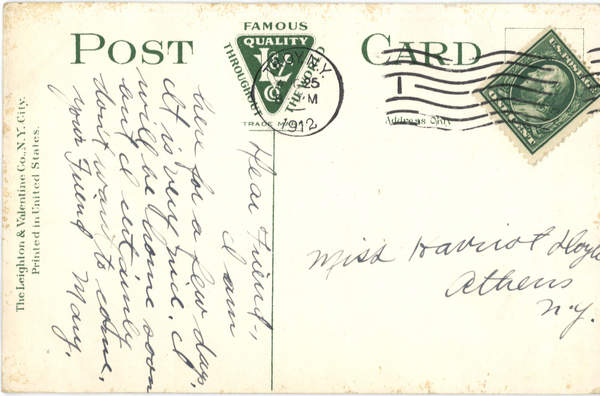 POST CARD
FAMOUS
QUALITY
THROUGHOUT
THE WORLD
L&V
Co
TRADE MARK
N.Y.
25
M
1912
1
Address Only
U.S. POSTAGE
ONE CENT
The Leighton & Valentine Co., N.Y. City.
Printed in United States.
Dear Friend,
I am
here for a few days.
It is very nice. I
will be home soon
but I certainly
dont want to come.
your Friend Mary.
Miss Harriot Hoyle
Athens
N.Y.